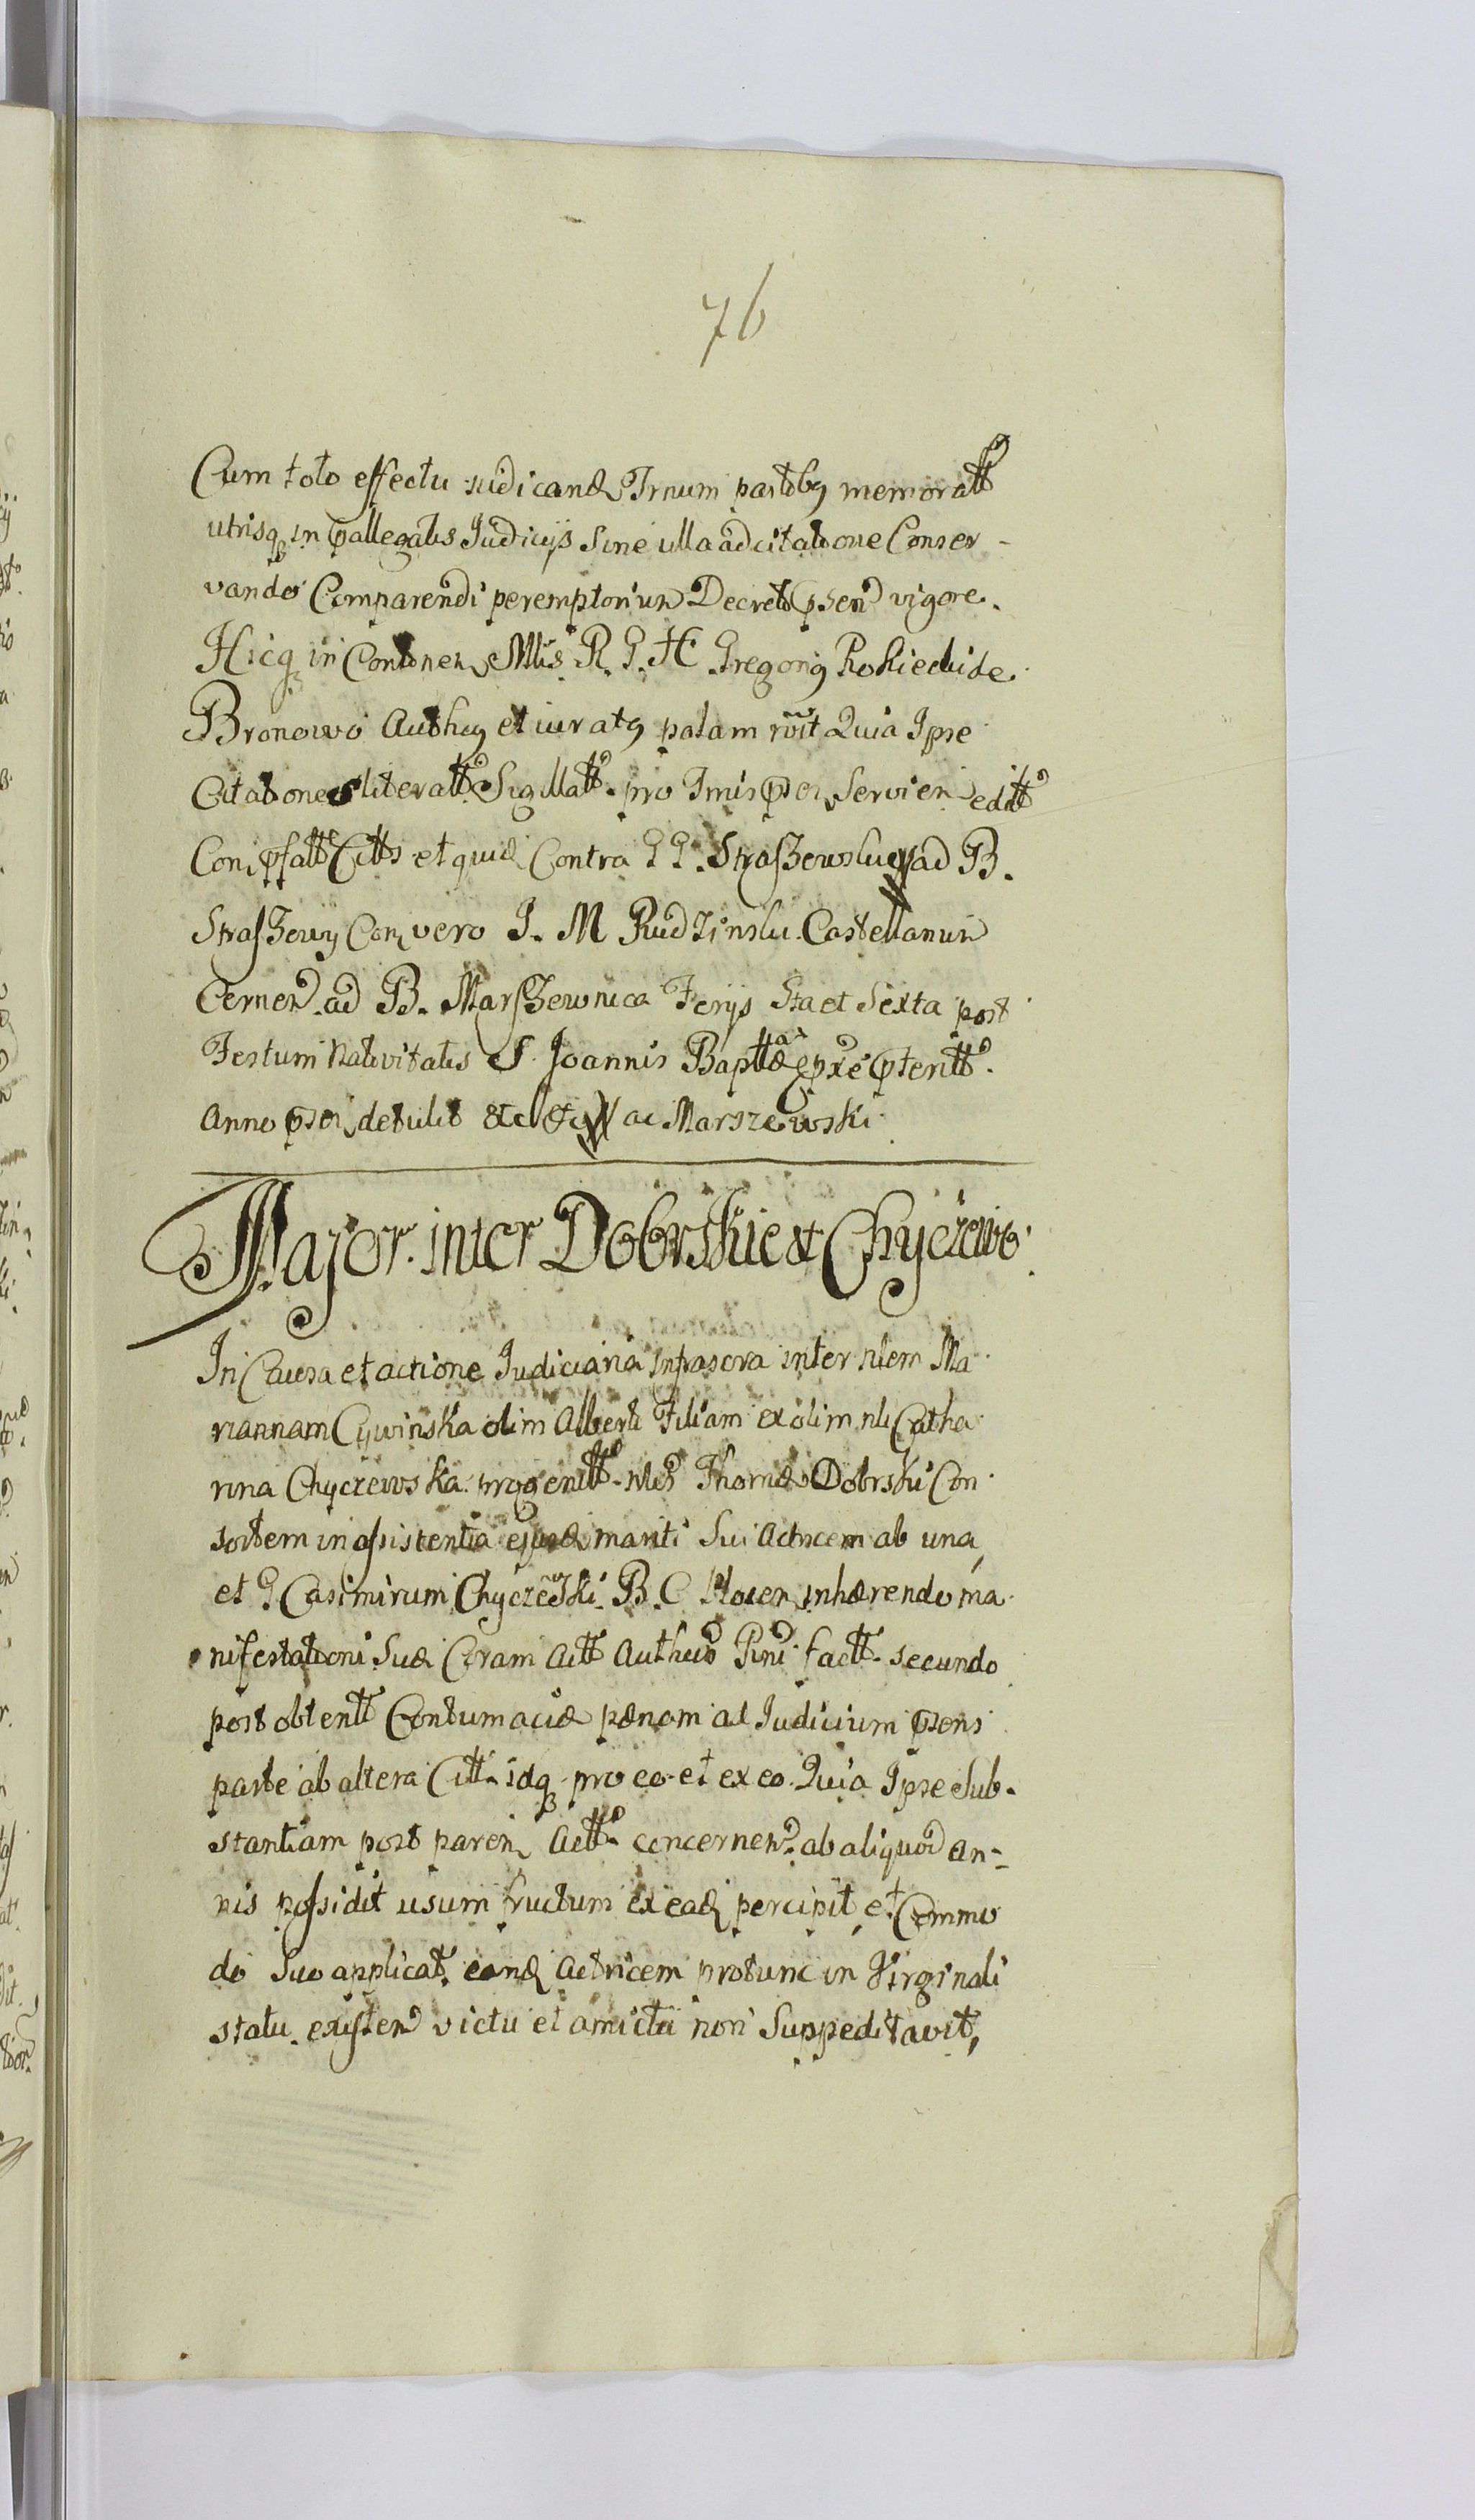 76
Cum toto effectu iudicand Trnum partibq memoratt
utrisq in pallegatis Judicijs Sine ulla adcitatione Conser-
vando Comparendi peremptorium Decreti psen vigore.
Hicq in Continen Mlis R. G. H Gregoriq Rokicki de
Bronowo Authq et iuratq palam roit Quia Ipse
Citationes literatt Sigillatt. pro Tmis psen Servien editt
Con pfatt Citts et quid Contra G G. Straszewskich ad B.
Straszewy Con vero J. M Rudzinski Castellanum
Cernen. ad B. Marszewnica Ferijs Sta et Sexta post
Festum Nativitatis S. Joannis Baptta pxe pteritt.
Anno psen detulit etc etc ac Marszewski
Major. inter Dobrskie et Chyczewo.
In Causa et actione Judiciaria infrascra inter nlem Ma
riannam Cywinska olim Alberti Filiam ex olim nli Catha
rina Chyczewska progenitt. nlis Thomæ Dobrski Con
sortem in assistentia ejusd mariti Sui Actricem ab una,
et G. Casimirum Chyczewski. B. C Plocen inhærendo ma
nifestationi Suæ Coram Actt Authen Pni factt. secundo
post obtentt Contumaciæ pænam ad Judicium psens
parte ab altera Citt. idq pro eo et ex eo. Quia Ipse Sub-
stantiam post paren Actt. concernen. ab aliquod an-
nis possidit usum fructum ex ead percipit, et Commo
do Suo applicat. eand Actricem protunc in Virginali
statu existen victu et amictu non Suppeditavit,